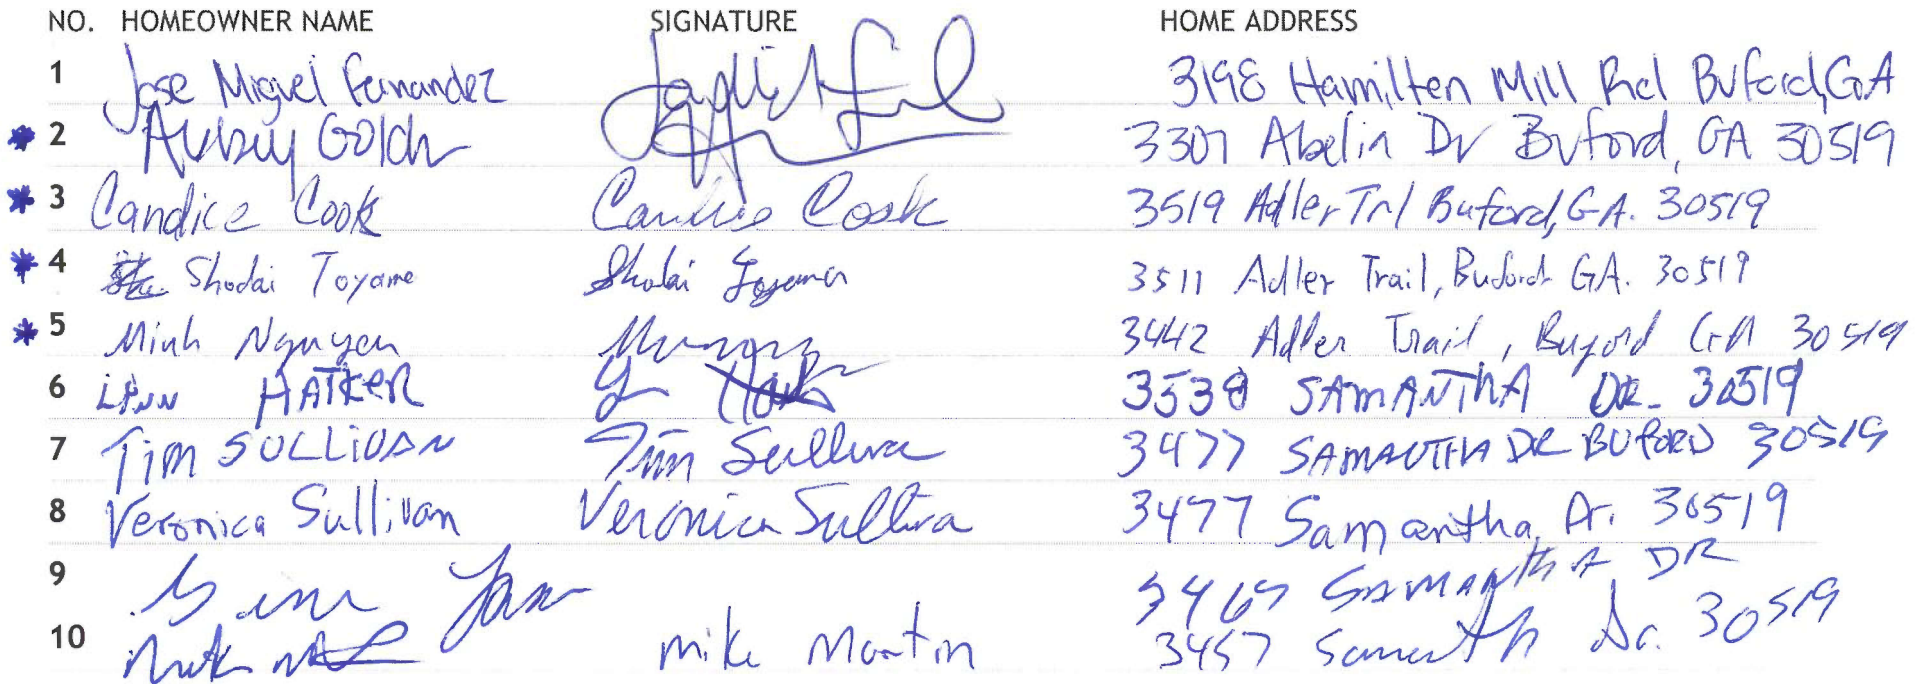 NO. HOMEOWNER NAME SIGNATURE HOME ADDRESS
1 Jose Miguel Fernandez 3198 Hamilten Mill Rd Buford, GA
2 Aubrey 3307 Abelia Dr Buford, GA 30519
3 Candice Cook Candice Cook 3519 Adler Trl Buford, GA. 30519
4 Shodai Toyama Shodai Toyama 3511 Adler Trail, Buford GA. 30519
5 Minh Nguyen 3442 Adler Trail, Buford GA 30519
6 LYNN HATKER 3538 SAMANTHA DR. 30519
7 Tim SULLIVAN Tim Sullivan 3477 SAMANTHA DR BUFORD 30519
8 Veronica Sullivan Veronica Sullivan 3477 Samantha Dr. 30519
9 3467 SAMANTHA DR
10 mike Martin 3457 Samantha Dr. 30519